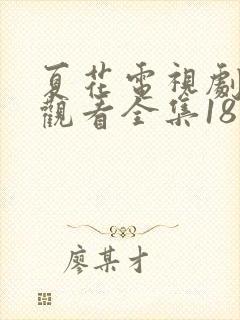 夏花電視劇
觀看全集18
廖某才